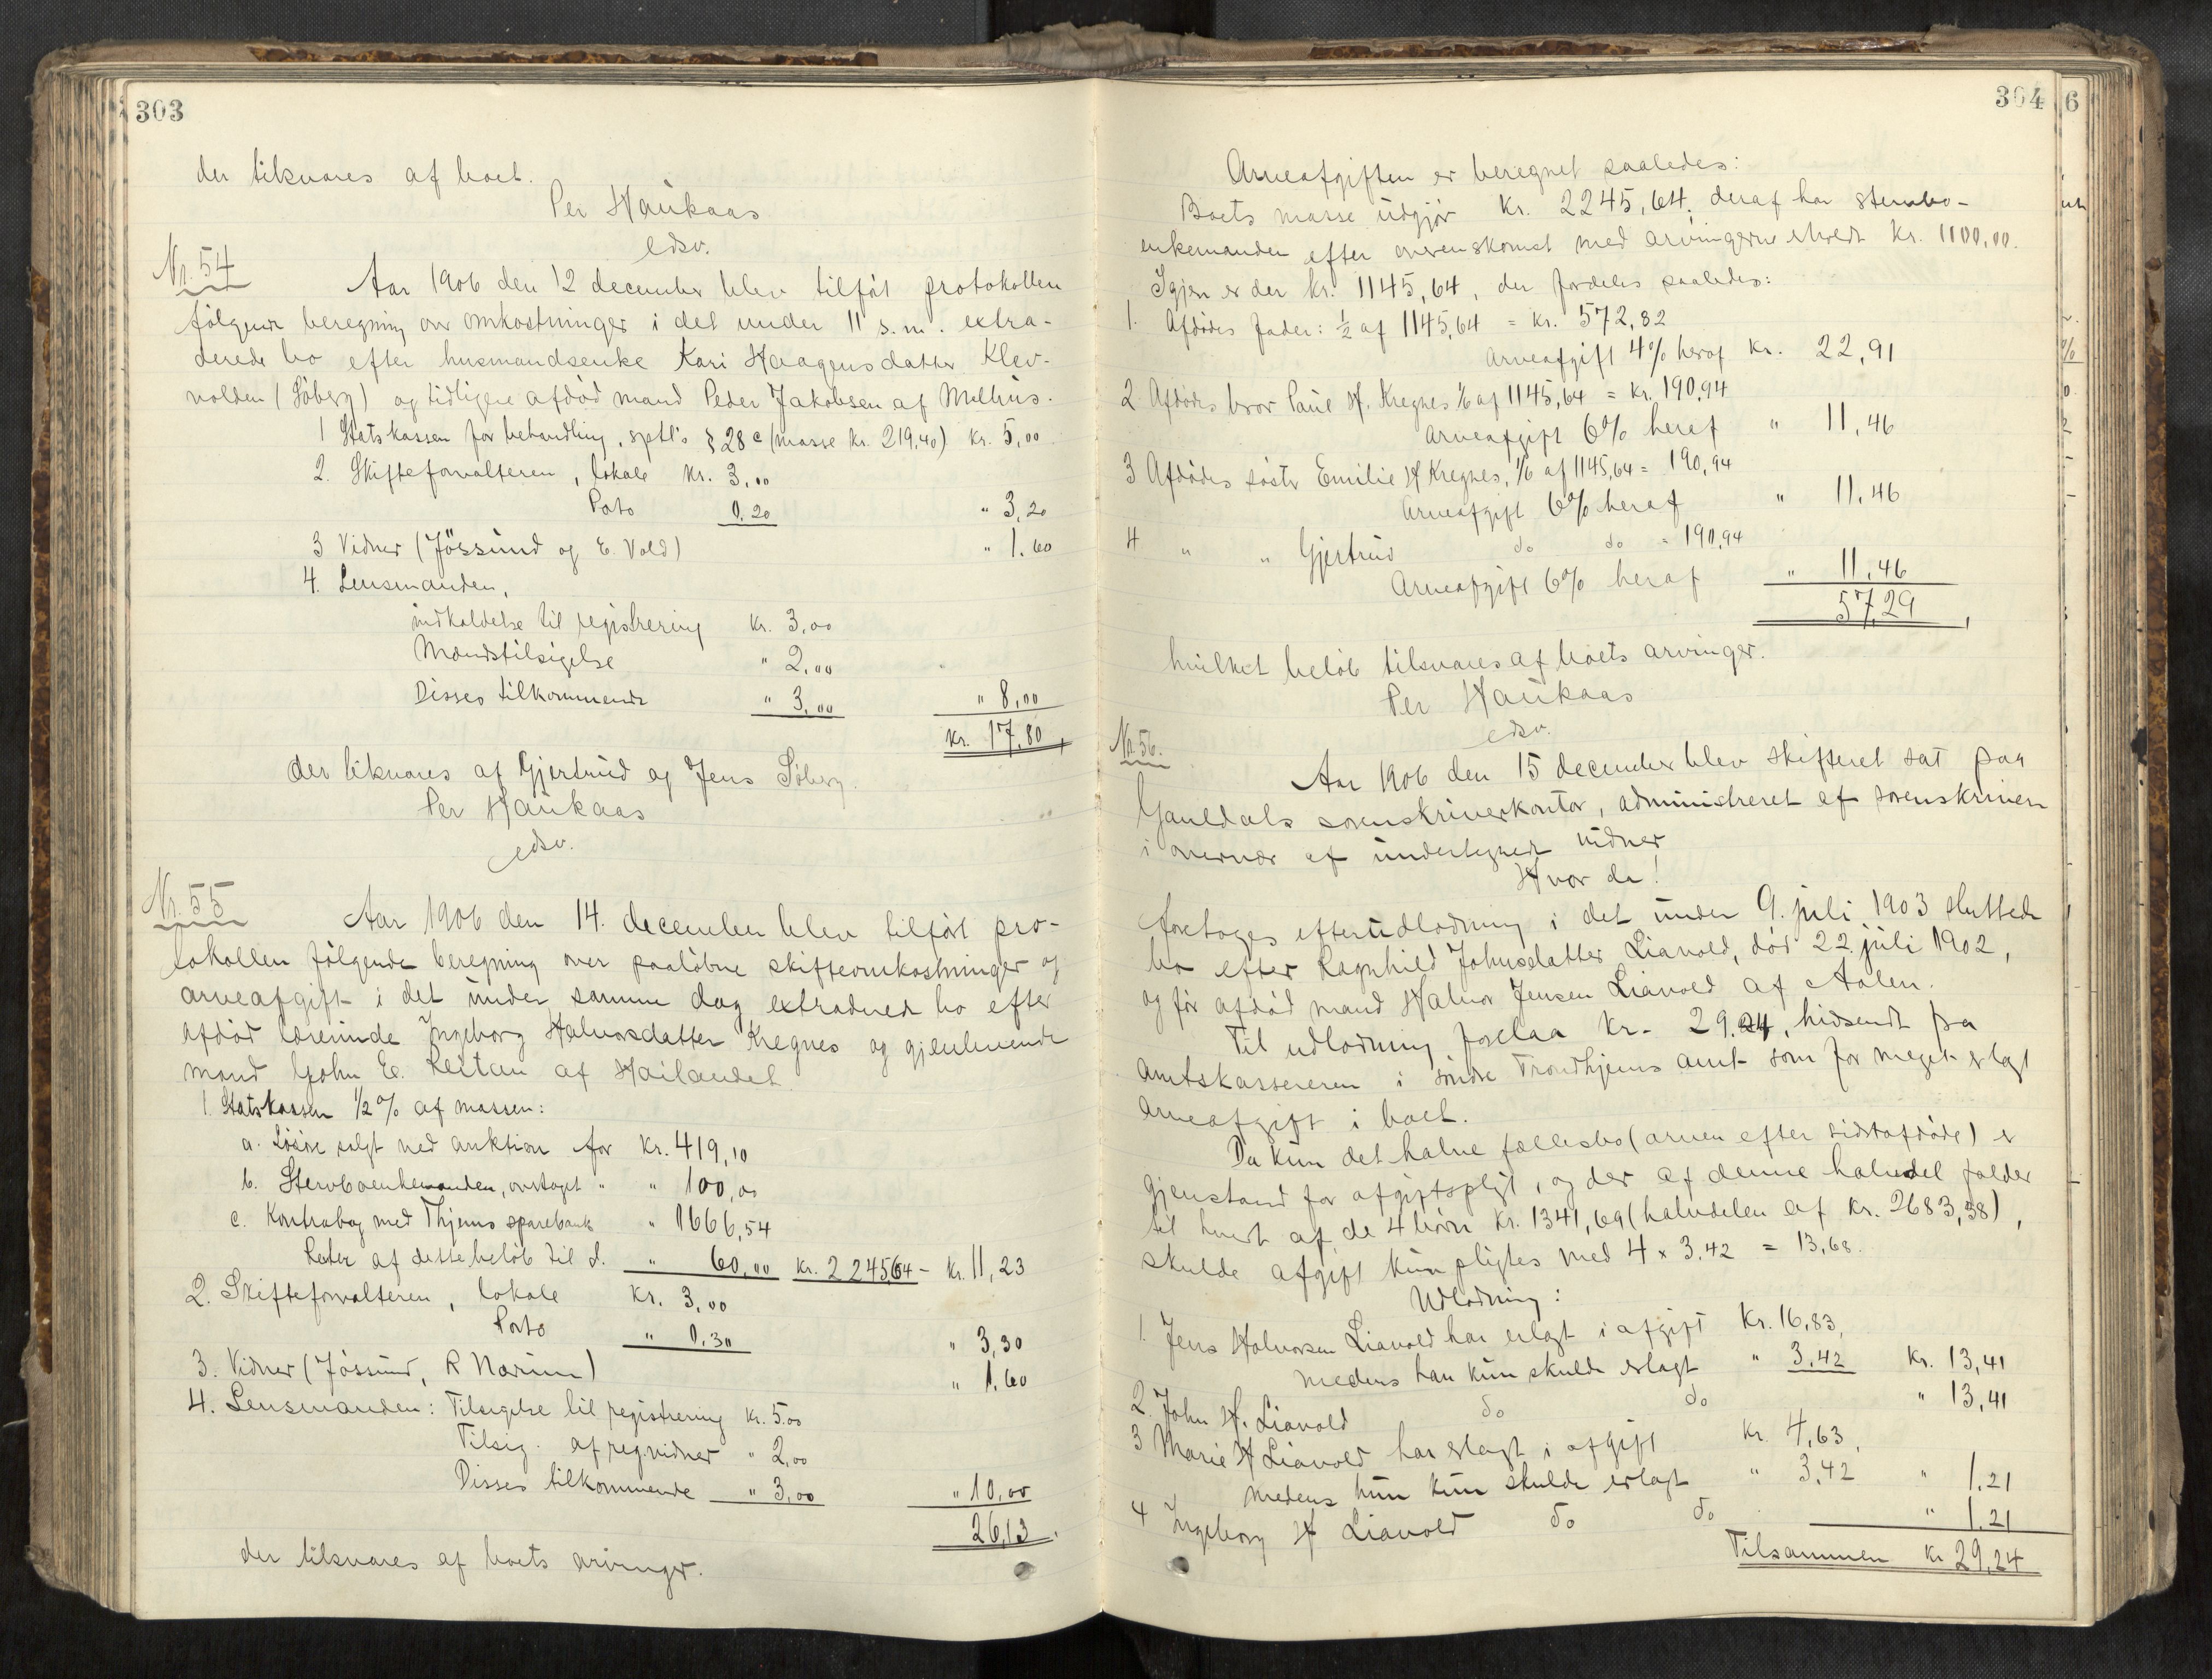 303
der tilsvares af boet.
Per Haukaas
edsv.
Nr. 54
Aar 1906 den 12 december blev tilført protokollen
følgende beregning over omkostninger i det under 11 s.m. extra-
derede bo efter husmandsenke Kari Haagensdatter Klev-
volden (Søberg) og tidligere afdød mand Peder Jakobsen af Melhus.
1 Statskassen for behandling, sptl's § 28 c (masse kr. 219,40) kr. 5,00
2. Skifteforvalteren, lokale kr. 3,00
Porto 0.20 " 3,20
3 Vidner (Jøssund og E. Vold) " 1.60
4. Lensmanden,
indkaldelse til registrering kr. 3,00
Mandstilsigelse " 2,00
Disses tilkommende " 3,00 " 8,00
kr. 17,80,
der tilsvares af Gjertrud og Jens Søberg.
Per Haukaas
edsv.
Nr. 55
Aar 1906 den 14. december blev tilført pro-
tokollen følgende beregning over paaløbne skifteomkostninger og
arveafgift i det under samme dag extraderede bo efter
afdød lærerinde Ingeborg Halvorsdatter Kregnes og gjenlevende
mand John E. Reitan af Høilandet.
1. Statskassen 1/2 % af massen:
a. Løsøre solgt ved auktion for kr. 419,10
b. Stervboenkemanden, overtaget " " 100,00
c. Kontrabog med Thjems sparebank " 1666,54
Renter af dette beløb til d. " 60,00 kr. 2245,64 - kr. 11,23
2. Skifteforvalteren, lokale kr. 3,00
Porto " 0,30 " 3,30
3. Vidner (Jøssund, R Norum) " 1.60
4. Lensmanden: Tilsigelse til registrering kr. 5.00
Tilsig. af reg.vidner " 2,00
Disses tilkommende " 3,00 " 10,00
26,13.
der tilsvares af boets arvinger.
304
Arveafgiften er beregnet saaledes:
Boets masse udgjør kr. 2245,64, deraf har stervbo-
enkemanden efter overenskomst med arvingerne erholdt kr. 1100,00.
Igjen er der kr. 1145,64, der fordeles saaledes:
1. Afdødes fader: 1/2 af 1145,64 = kr. 572,82
Arveafgift 4% heraf kr. 22,91
2. Afdødes bror Paul H. Kregnes 1/6 af 1145,64 = kr. 190,94
Arveafgift 6% heraf " 11,46
3 Afdødes søster Emilie H Kregnes, 1/6 af 1145,64 = 190,94
Arveafgift 6% heraf " 11,46
4 " " Gjertrud do do = 190,94
Arveafgift 6% heraf " 11,46
57,29,
hvilket beløb tilsvares af boets arvinger.
Per Haukaas
edsv.
Nr. 56.
Aar 1906 den 15 december blev skifteret sat paa
Gauldals sorenskriverkontor, administreret af sorenskriveren
i overvær af undertegnede vidner
Hvor da!
foretoges efterudlodning i det under 9. juli 1903 sluttede
bo efter Ragnhild Johnsdatter Liavold, død 22. juli 1902,
og før afdød mand Halvor Jensen Liavold af Aalen.
Til udlodning forelaa kr. 29.24, hidsendt fra
Amtskassereren i søndre Trondhjems amt som for meget erlagt
arveafgift i boet.
Da kun det halve fællesbo (arven efter sidstafdøde) er
gjenstand for afgiftspligt, og der af denne halvdel falder
til hvert af de 4 børn kr. 1341,69 (halvdelen af kr. 2683,38),
skulde afgift kun pligtes med 4 x 3.42 = 13,68.
Udlodning:
1. Jens Halvorsen Liavold har erlagt i afgift kr. 16,83,
medens han kun skulde erlagt " 3,42 kr. 13,41
2. John H. Liavold do do " 13,41
3 Marie H Liavold har erlagt i afgift kr. 4,63,
medens hun kun skulde erlagt " 3,42 " 1.21
4 Ingeborg H Liavold do do " 1.21
Tilsammen kr 29,24